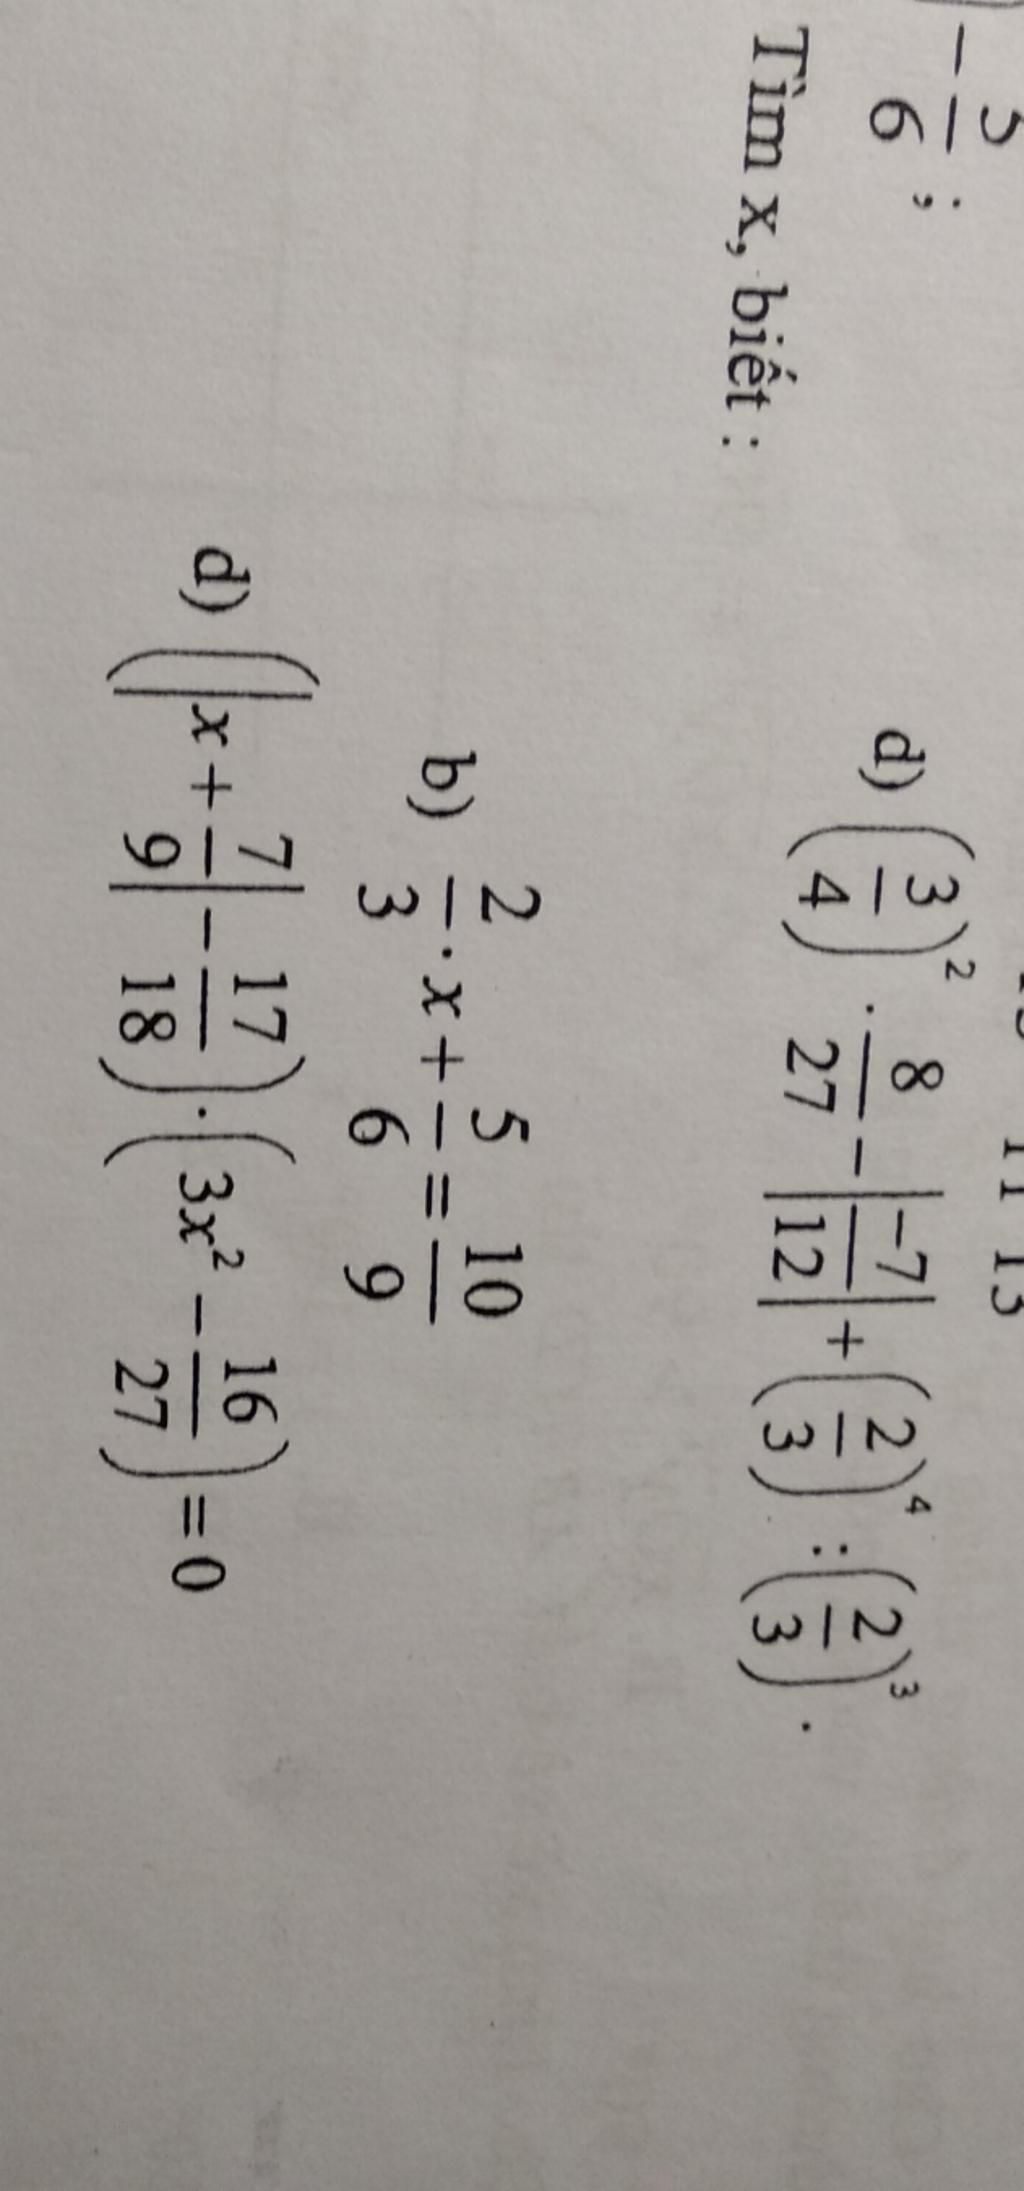 - 5/6 ;
d) (3/4)² · 8/27 - |-7/12| + (2/3)⁴ : (2/3)³ .
Tìm x, biết :
b) 2/3 · x + 5/6 = 10/9
d) (|x + 7/9| - 17/18) · (3x² - 16/27) = 0